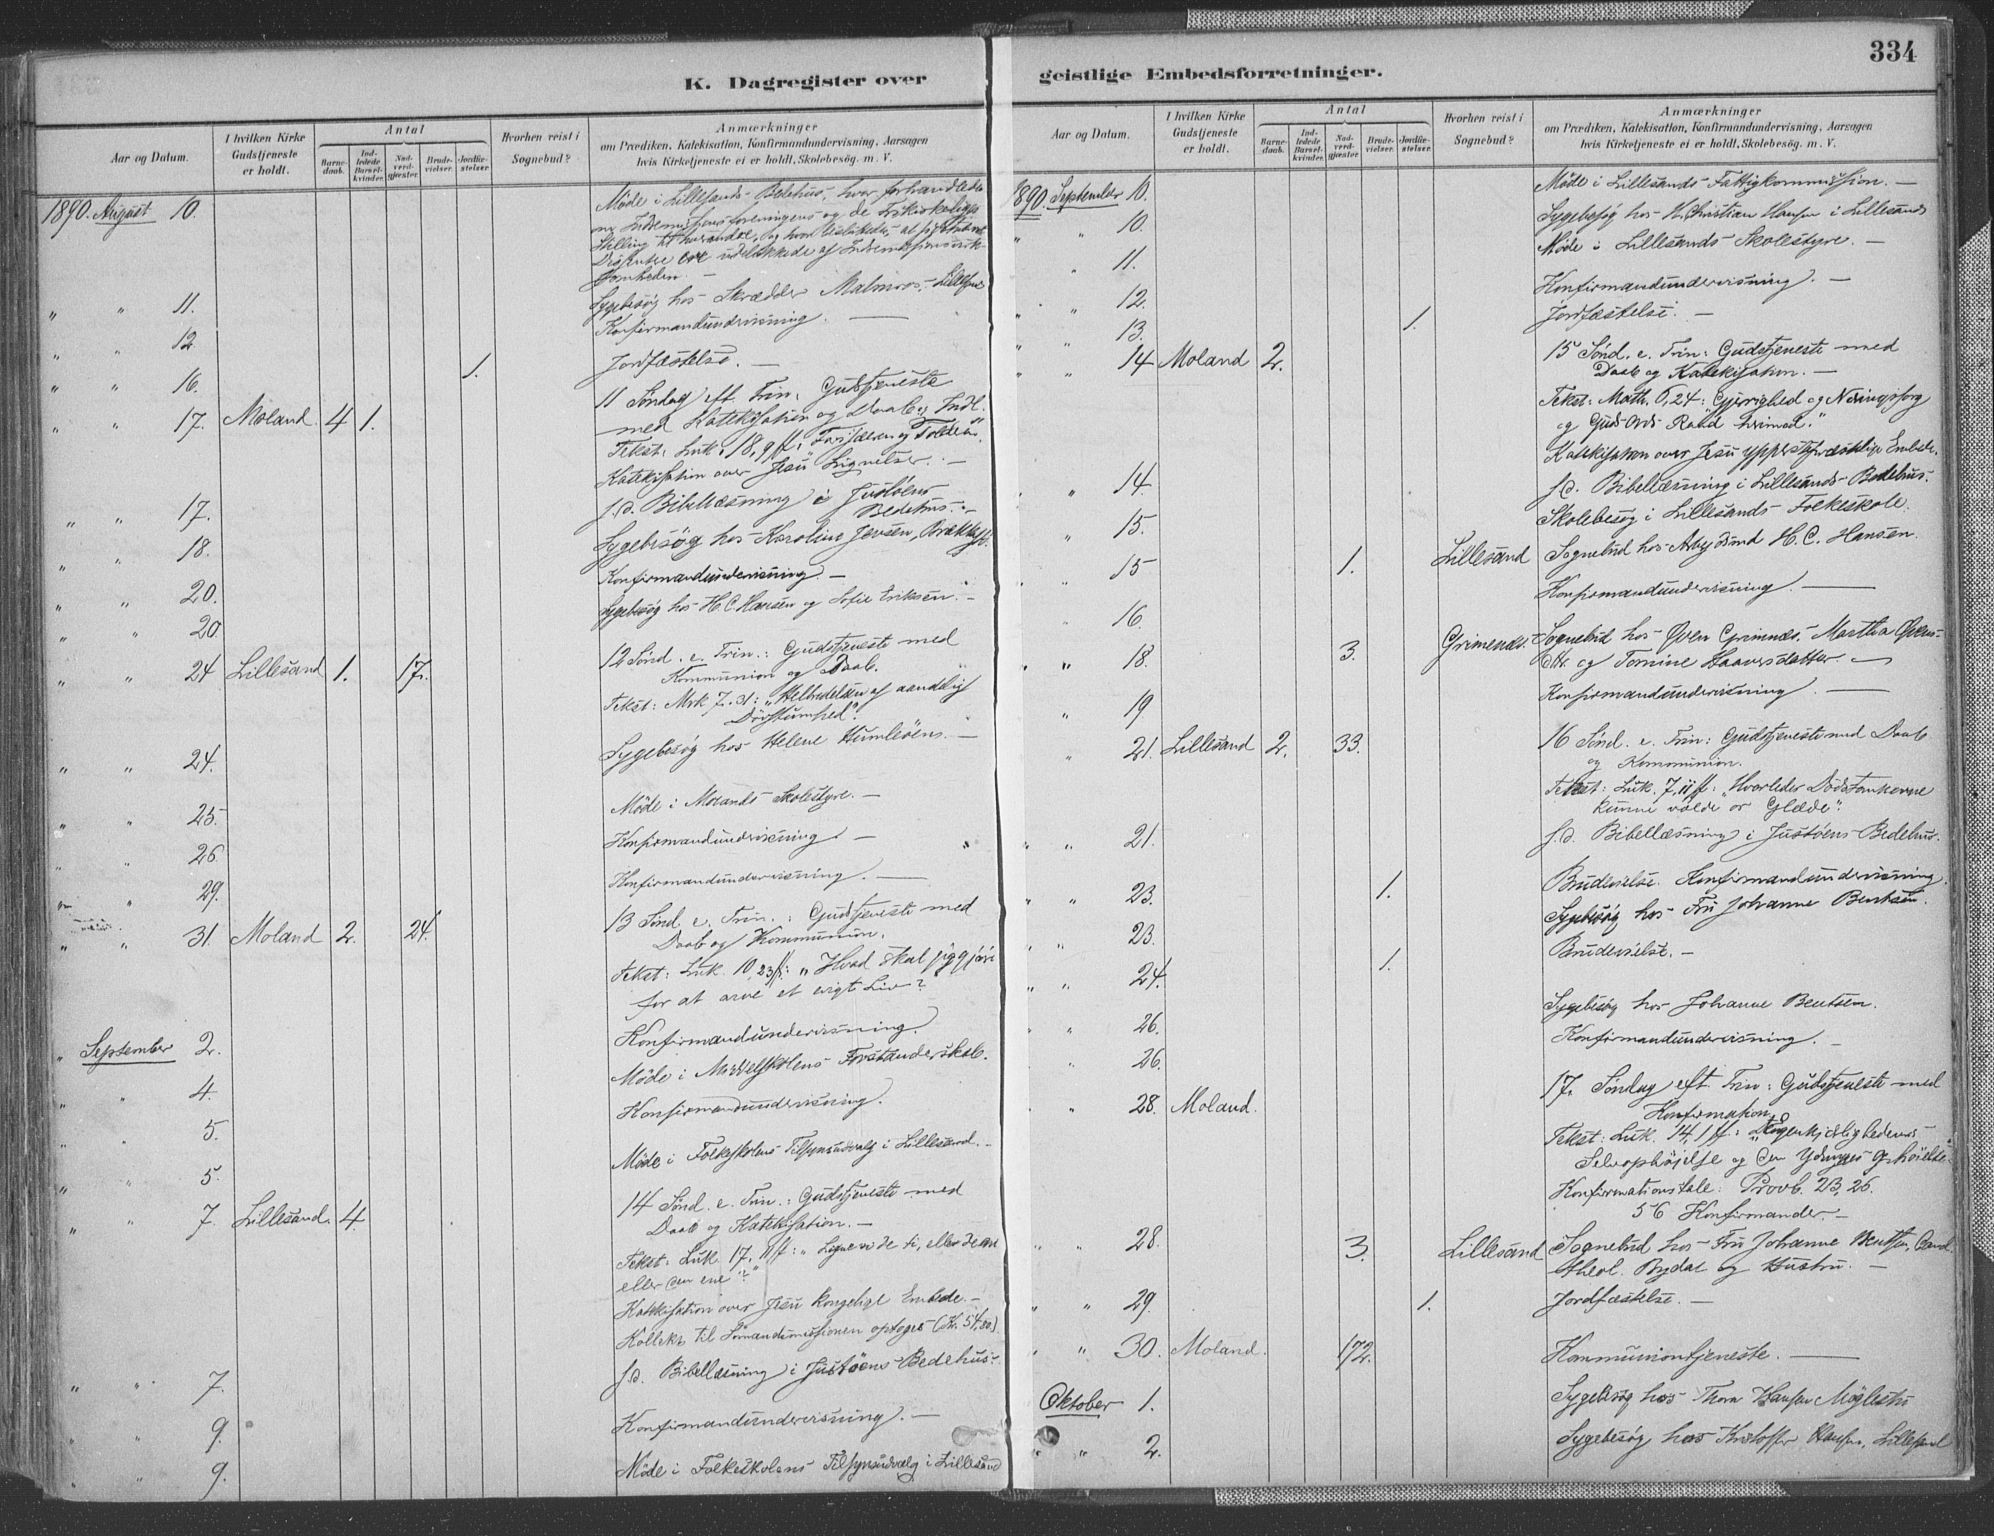 334
K. Dagregister over
Aar og Datum.
I hvilken Kirke Gudstjeneste er holdt.
Antal
Barnedaab.
Indledede Barselkvinder.
Nadverdgjæster.
Brudevielser.
Jordfæstelser.
Hvorhen reist i Sognebud?
Anmærkninger
om Prædiken, Katekisation, Konfirmandundervisning, Aarsagen
hvis Kirketjeneste ei er holdt, Skolebesög. m. V.
1890. August 10. Möde i Lillesands Bedehus, hvor forhandledes
om Indremissionsforeningens og de
Stilling til hverandre, og hvor
11. Sygebesøg hos Skrædder Malmros, Lillesand
12 Konfirmandundervisning. —
16. 1. Jordfæstelse. —
17. Moland. 4 1. 11 Søndag eft. Trin. Gudstjeneste
med Katekisation og Daab og Indl.
Tekst: Luk. 18, 9 ff:
Katekisation over Jesu Lignelser. —
17. s. d. Bibellæsning i Justøens
Bedehus. —
18. Sygebesøg hos Karoline Jensen,
20. Konfirmandundervisning —
20. Sygebesøg hos H. C. Hansen og Sofie Eriksen. —
24 Lillesand 1. 17. 12 Sønd. e. Trin.: Gudstjeneste med
Kommunion og Daab.
Tekst: Mrk 7. 31: "Helbredelsen af aandelig
Døvstumhed".
24. Sygebesøg hos Helene Humleöens. —
25. Møde i Molands Skolestyre. —
26 Konfirmandundervisning —
29. Konfirmandundervisning. —
31. Moland 2. 24. 13 Sønd. e. Trin.: Gudstjeneste med
Daab og Kommunion.
Tekst: Luk. 10, 23 ff: "Hvad skal jeg gjøre
for at arve et evigt Liv?
September 2. Konfirmandundervisning.
4. Møde i Middelskolens Forstanderskab.
5. Konfirmandundervisning.
5. Møde i Folkeskolens Tilsynsudvalg i Lillesand. —
7. Lillesand. 4. 14 Sønd. e. Trin.: Gudstjeneste med
Daab og Katekisation. —
Tekst: Luk. 17, 11 ff: "Ligne vi de ti, eller de ni
eller den ene?"
Katekisation over Jesu kongelige Embede. —
Kollekt til Sömandsmissionen optoges (Kr. 54,20)
7. s. d. Bibellæsning i Justöens Bedehus. —
9. Konfirmandundervisning. —
9. Møde i Folkeskolens Tilsynsudvalg i Lillesand
geistlige Embedsforretninger.
Aar og Datum.
I hvilken Kirke Gudstjeneste er holdt.
Antal
Barnedaab.
Indledede Barselkvinder.
Nadverdgjæster.
Brudevielser.
Jordfæstelser.
Hvorhen reist i Sognebud?
Anmærkninger
om Prædiken, Katekisation, Konfirmandundervisning, Aarsagen
hvis Kirketjeneste ei er holdt, Skolebesög. m. V.
1890. September 10. Møde i Lillesands Fattigkommission. —
10. Sygebesøg hos H. Christian Hansen i Lillesand
11. Møde i Lillesands Skolestyre. —
12. Konfirmandundervisning. —
13. 1. Jordfæstelse. —
14 Moland 2. 15 Sønd. e. Trin: Gudstjeneste med
Daab og Katekisation. —
Tekst: Math. 6, 24: "Gjerrighed og Næringssorg
og Guds Ords Raad herimod."
Katekisation over Jesu ypperstepræstelige Embede.
14. s. d. Bibellæsning i Lillesands Bedehus.
15. Skolebesøg i Lillesands Folkeskole.
15 1. Lillesand Sognebud hos Arbejdsmd H. C. Hansen.
16. Konfirmandundervisning. —
18. 3. Grimenes. Sognebud hos Oven Grimnæs. Martha Ovens-
dtr. og Tomine Haaversdatter. —
19 Konfirmandundervisning. —
21. Lillesand 2. 33. 16 Sønd. e. Trin: Gudstjeneste med Daab
og Kommunion.
Tekst: Luk. 7, 11 ff: "Hvorledes Dødstankerne
kunne volde os Glæde".
21. s. d. Bibellæsning i Justøens Bedehus.
23. 1. Brudevielse. Konfirmandundervisning.
23. Sygebesøg hos Fru Johanne Bentsen.
24. 1. Brudevielse. —
26. Sygebesøg hos Johanne Bentsen.
26. Konfirmandundervisning. —
28. Moland. 17. Søndag eft. Trin: Gudstjeneste med
Konfirmation.
Tekst: Luk. 14, 1 ff: "Egenkjærlighedens
Selvophøjelse og den Ydmyges Ophöielse.
Konfirmationstale: Provb. 23, 26.
56 Konfirmander. —
28. 3. Lillesand Sognebud hos Fru Johanne Bentsen, Cand.
theol. Rydal og Hustru. —
29. 1. Jordfæstelse. —
30. Moland. 172. Kommuniontjeneste. —
Oktober 1. Sygebesøg hos Thora Hansen Møglestu
2. Sygebesøg hos Kristoffer Hansen, Lillesand